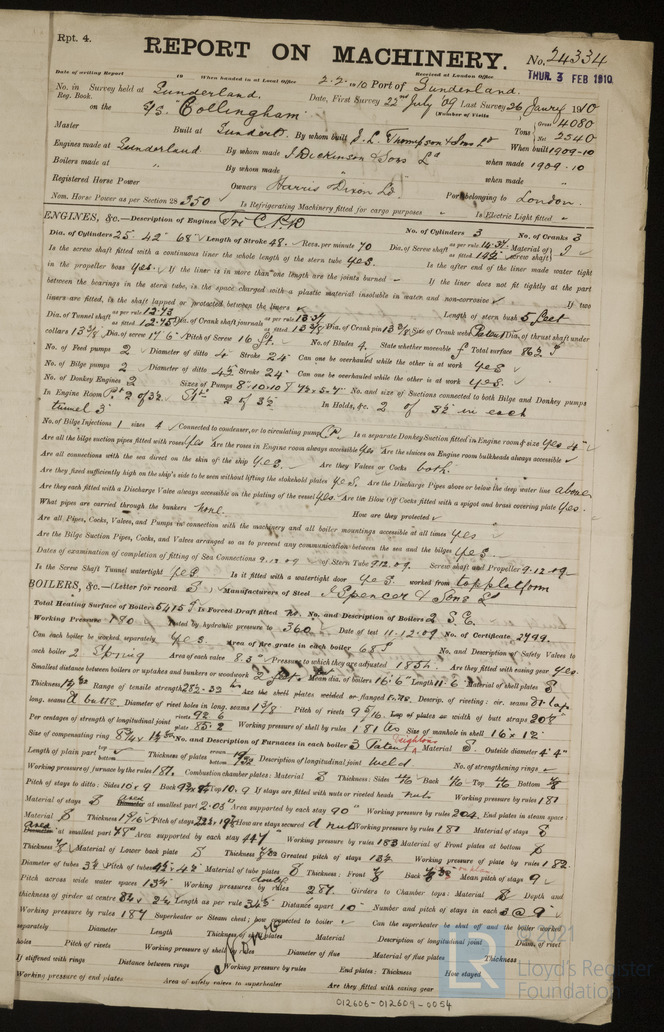 Rpt. 4.
REPORT ON MACHINERY.
No. 24334
THUR. 3 FEB 1910
Date of writing Report 19 When handed in at Local Office 2.2.1910 Port of Sunderland. Received at London Office
No. in Survey held at Sunderland. Date, First Survey 22nd July 09 Last Survey 26 Jany 1910
Reg. Book. (Number of Visits
on the S/S "Collingham" Tons Gross 4080 Net 2540
Master Built at Sunderld. By whom built J. L. Thompson & Sons Ld When built 1909-10
Engines made at Sunderland By whom made J Dickinson & Sons Ld when made 1909-10
Boilers made at " By whom made " when made "
Registered Horse Power Owners Harris Dixon Ld Port belonging to London.
Nom. Horse Power as per Section 28 350 Is Refrigerating Machinery fitted for cargo purposes Is Electric Light fitted
ENGINES, &c.—Description of Engines Tri C. No. of Cylinders 3 No. of Cranks 3
Dia. of Cylinders 25" 42" 68" Length of Stroke 48 Revs. per minute 70 Dia. of Screw shaft as per rule as fitted Material of screw shaft
Is the screw shaft fitted with a continuous liner the whole length of the stern tube yes. Is the after end of the liner made water tight
in the propeller boss yes. If the liner is in more than one length are the joints burned If the liner does not fit tightly at the part
between the bearings in the stern tube, is the space charged with a plastic material insoluble in water and non-corrosive If two
liners are fitted, is the shaft lapped or protected between the liners Length of stern bush 5 feet
Dia. of Tunnel shaft as per rule 12.73 as fitted 12.75 Dia. of Crank shaft journals as per rule as fitted 13 3/8 Dia. of Crank pin 13 3/8 Size of Crank webs Patent Dia. of thrust shaft under
collars 13 3/8 Dia. of screw 17'6" Pitch of Screw 16 ft. No. of Blades 4 State whether moveable Total surface 86½
No. of Feed pumps 2 Diameter of ditto 4 Stroke 24" Can one be overhauled while the other is at work yes
No. of Bilge pumps 2 Diameter of ditto 4½ Stroke 24" Can one be overhauled while the other is at work yes.
No. of Donkey Engines 2 Sizes of Pumps No. and size of Suctions connected to both Bilge and Donkey pumps
In Engine Room 2 of 3½ 2 of 3½ In Holds, &c. 2 of 3½ in each
tunnel 3"
No. of Bilge Injections 1 sizes 4 Connected to condenser, or to circulating pump Is a separate Donkey Suction fitted in Engine room & size yes 4"
Are all the bilge suction pipes fitted with roses yes Are the roses in Engine room always accessible yes Are the sluices on Engine room bulkheads always accessible
Are all connections with the sea direct on the skin of the ship yes. Are they Valves or Cocks both.
Are they fixed sufficiently high on the ship's side to be seen without lifting the stokehold plates yes. Are the Discharge Pipes above or below the deep water line above
Are they each fitted with a Discharge Valve always accessible on the plating of the vessel yes. Are the Blow Off Cocks fitted with a spigot and brass covering plate yes.
What pipes are carried through the bunkers none. How are they protected
Are all Pipes, Cocks, Valves, and Pumps in connection with the machinery and all boiler mountings accessible at all times yes
Are the Bilge Suction Pipes, Cocks, and Valves arranged so as to prevent any communication between the sea and the bilges yes
Dates of examination of completion of fitting of Sea Connections 9.12.09 of Stern Tube 9.12.09. Screw shaft and Propeller 9.12.09
Is the Screw Shaft Tunnel watertight yes Is it fitted with a watertight door yes. worked from top platform
BOILERS, &c.—(Letter for record S) Manufacturers of Steel J Spencer & Sons Ld
Total Heating Surface of Boilers 5415 Is Forced Draft fitted no No. and Description of Boilers 2 S.E.
Working Pressure 180 Tested by hydraulic pressure to 360 Date of test 11.12.09 No. of Certificate 2799.
Can each boiler be worked separately yes. Area of fire grate in each boiler 68 No. and Description of Safety Valves to
each boiler 2 Spring Area of each valve 8.3 Pressure to which they are adjusted 185 Are they fitted with easing gear yes.
Smallest distance between boilers or uptakes and bunkers or woodwork 2 feet Mean dia. of boilers 16'6" Length 11'6 Material of shell plates S
Thickness Range of tensile strength 28½-32 Are the shell plates welded or flanged Descrip. of riveting: cir. seams dr. lap
long. seams butts Diameter of rivet holes in long. seams 1 3/8 Pitch of rivets 9 5/16 Lap of plates or width of butt straps
Per centages of strength of longitudinal joint rivets 92.6 plate 85.2 Working pressure of shell by rules 181 Size of manhole in shell 16" x 12"
Size of compensating ring No. and Description of Furnaces in each boiler 3 Patent Deightons Material S. Outside diameter 4'4"
Length of plain part top bottom Thickness of plates crown bottom Description of longitudinal joint weld No. of strengthening rings
Working pressure of furnace by the rules 181. Combustion chamber plates: Material S Thickness: Sides Back Top Bottom
Pitch of stays to ditto: Sides 10 x 9 Back Top 10 x 9 If stays are fitted with nuts or riveted heads nuts Working pressure by rules 181
Material of stays S area at smallest part 2.03 Area supported by each stay 90" Working pressure by rules 204. End plates in steam space:
Material S Thickness Pitch of stays How are stays secured d nuts Working pressure by rules 181 Material of stays S
area at smallest part Area supported by each stay 447 Working pressure by rules 183 Material of Front plates at bottom S
Thickness Material of Lower back plate S Thickness Greatest pitch of stays 13½ Working pressure of plate by rules 182
Diameter of tubes 3¼ Pitch of tubes Material of tube plates S Thickness: Front Back Mean pitch of stays 9
Pitch across wide water spaces 13½ Working pressures by rules 287. Girders to Chamber tops: Material S Depth and
thickness of girder at centre Length as per rule 34½ Distance apart 10" Number and pitch of stays in each 3 @ 9"
Working pressure by rules 187 Superheater or Steam chest; how connected to boiler Can the superheater be shut off and the boiler worked
separately Diameter Length Thickness of shell plates Material Description of longitudinal joint Diam. of rivet
holes Pitch of rivets Working pressure of shell by rules Diameter of flue Material of flue plates Thickness
If stiffened with rings Distance between rings Working pressure by rules End plates: Thickness How stayed
None
Working pressure of end plates Area of safety valves to superheater Are they fitted with easing gear
© 2021
LR
Lloyd's Register
Foundation
012606-012609-0054